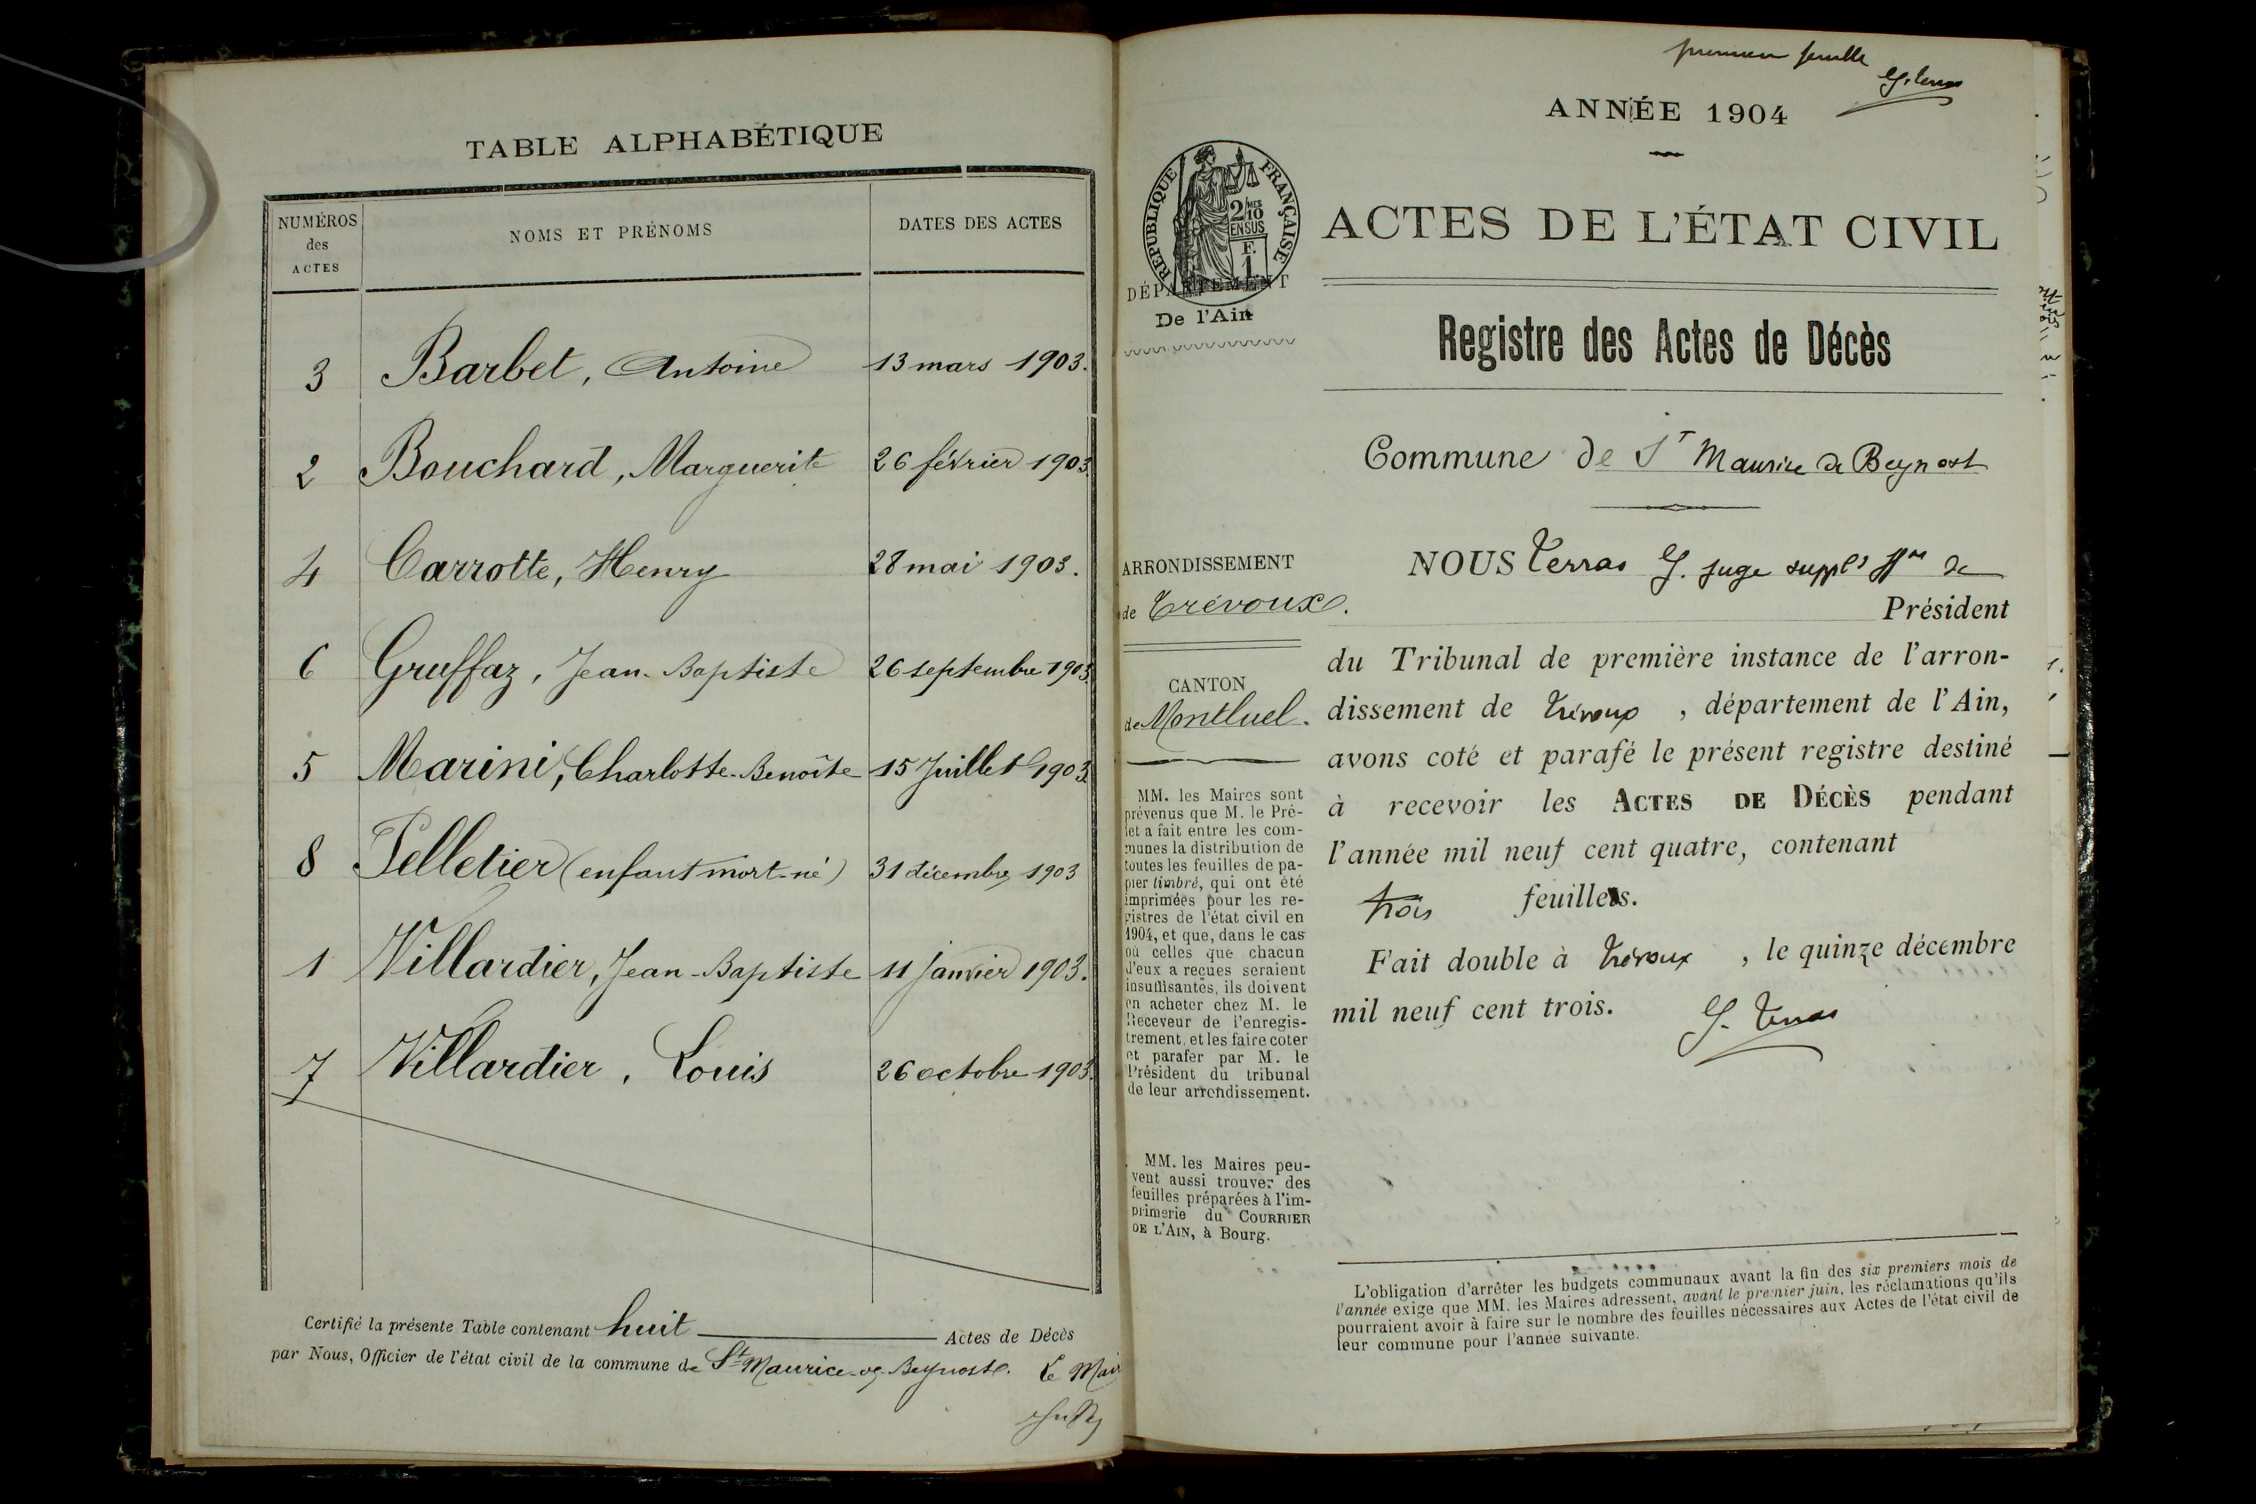 TABLE ALPHABÉTIQUE
NUMÉROS
des
ACTES
NOMS ET PRÉNOMS
DATES DES ACTES
3 Barbet, Antoine 13 mars 1903.
2 Bouchard, Marguerite 26 février 1903.
4 Carrotte, Henry 28 mai 1903.
6 Gruffaz, Jean-Baptiste 26 septembre 1903.
5 Marini, Charlotte-Benoîte 15 Juillet 1903.
8 Pelletier (enfant mort-né) 31 décembre 1903
1 Villardier, Jean-Baptiste 11 janvier 1903.
7 Villardier, Louis 26 octobre 1903.
Certifié la présente Table contenant huit Actes de Décès
par Nous, Officier de l'état civil de la commune de St Maurice-de-Beynost. Le Mair
feuille
ANNÉE 1904
RÉPUBLIQUE FRANÇAISE
2/10 MES
EN SUS
F.
1
DÉPARTEMENT
De l'Ain
ACTES DE L'ÉTAT CIVIL
Registre des Actes de Décès
Commune de St Maurice de Beynost
ARRONDISSEMENT
de Trévoux.
CANTON
de Montluel.
MM. les Maires sont
prévenus que M. le Pré-
fet a fait entre les com-
munes la distribution de
toutes les feuilles de pa-
pier timbré, qui ont été
imprimées pour les re-
gistres de l'état civil en
1904, et que, dans le cas
où celles que chacun
d'eux a reçues seraient
insuffisantes, ils doivent
en acheter chez M. le
Receveur de l'enregis-
trement, et les faire coter
et parafer par M. le
Président du tribunal
de leur arrondissement.
MM. les Maires peu-
vent aussi trouver des
feuilles préparées à l'im-
primerie du COURRIER
DE L'AIN, à Bourg.
NOUS Terras G. juge suppt ffon de
Président
du Tribunal de première instance de l'arron-
dissement de Trévoux, département de l'Ain,
avons coté et parafé le présent registre destiné
à recevoir les ACTES DE DÉCÈS pendant
l'année mil neuf cent quatre, contenant
trois feuilles.
Fait double à Trévoux, le quinze décembre
mil neuf cent trois.
G. Terras
L'obligation d'arrêter les budgets communaux avant la fin des six premiers mois de
l'année exige que MM. les Maires adressent, avant le premier juin, les réclamations qu'ils
pourraient avoir à faire sur le nombre des feuilles nécessaires aux Actes de l'état civil de
leur commune pour l'année suivante.